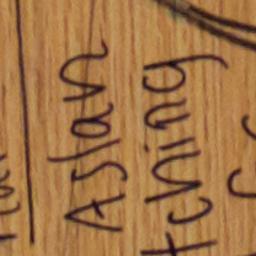 Aslan
tching